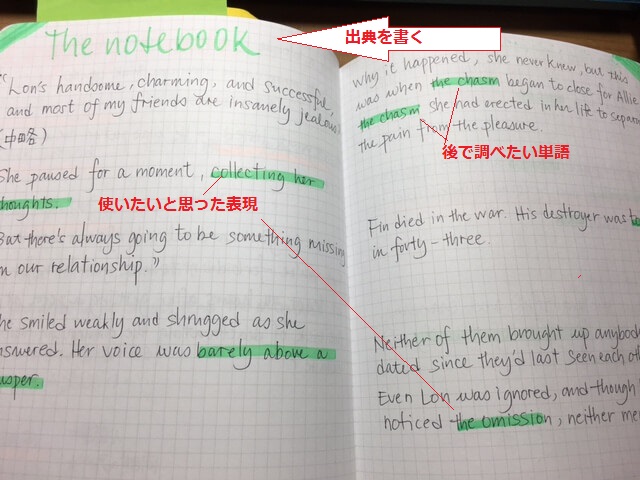 The notebook
出典を書く
"Lon's handsome, charming, and successful,
and most of my friends are insanely jealous
(中略)
She paused for a moment, collecting her
thoughts.
使いたいと思った表現
But there's always going to be something missing
in our relationship."
She smiled weakly and shrugged as she
answered. Her voice was barely above a
whisper.
why it happened, she never knew, but this
was when the chasm began to close for Allie
the chasm she had erected in her life to separate
the pain from the pleasure.
後で調べたい単語
Fin died in the war. His destroyer was
in forty-three.
Neither of them brought up anybody
dated since they'd last seen each other
Even Lon was ignored, and though
noticed the omission, neither